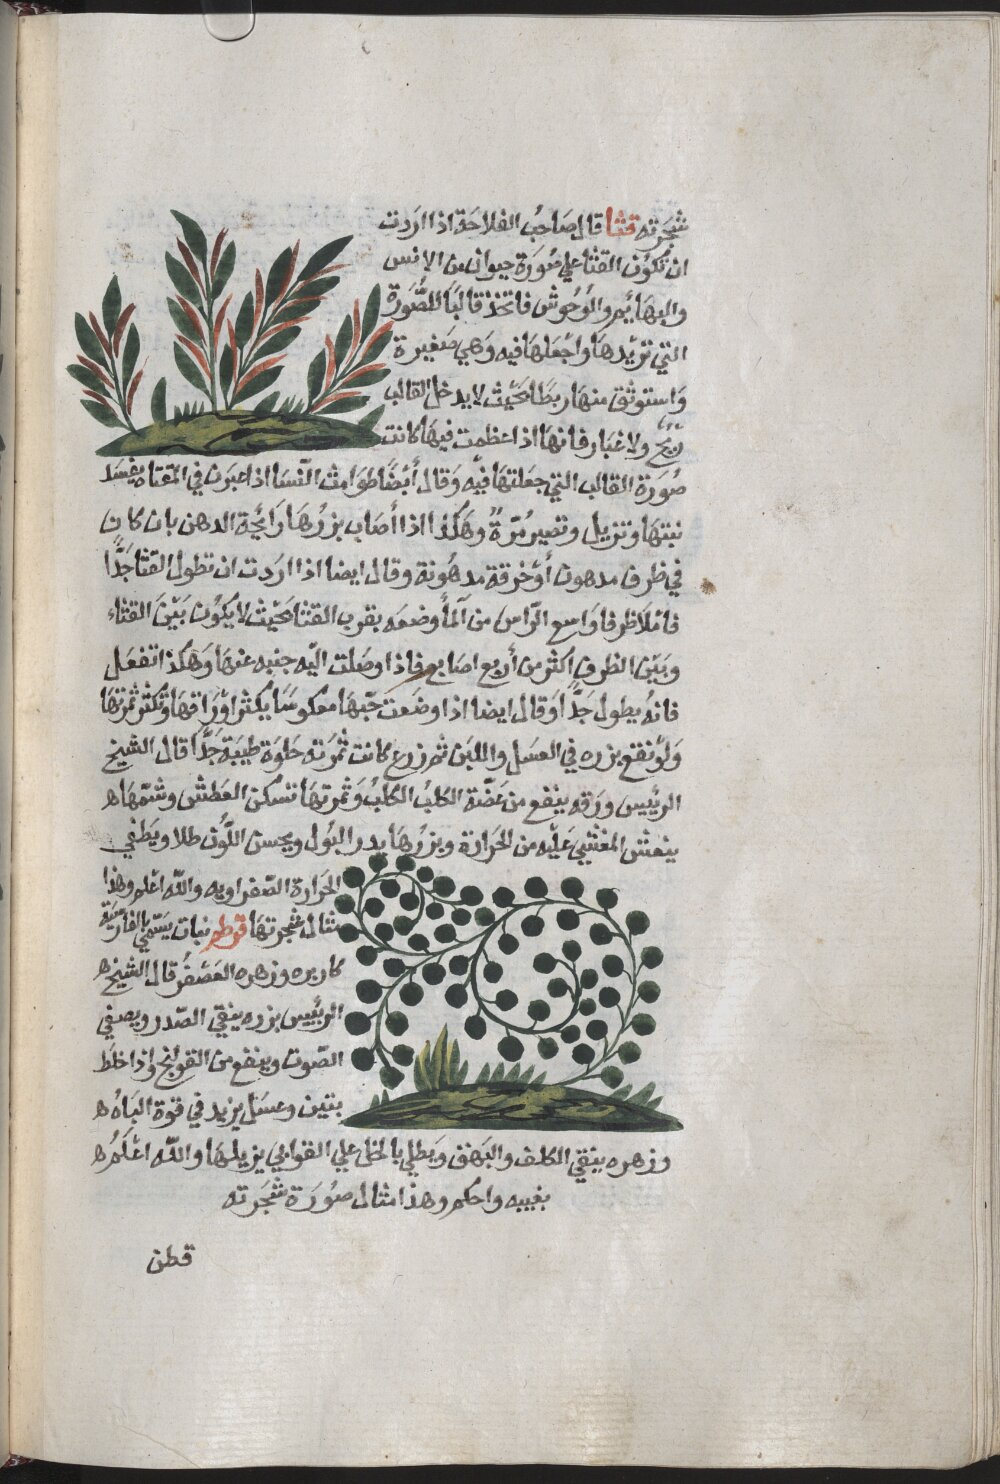 شجرته قثا قال صاحب الفلاحة اذا اردت
ان تكون القثا علي صورة حيوان من الانس
والبهايم والوحوش فاتخذ قالبا للصورة
التي تريدها واجعلها فيه وهي صغيرة
واستوثق منها ربطا بحيث لا يدخل القالب
ريح ولا غبار فانها اذا عظمت فيها كانت
صورة القالب التي جعلتها فيه وقال أيضا طوامث النسا اذا عبرن في المقتاه يفسد
نبتها وتزيل وتصير مرة وهكذا اذا أصاب بزرها رايحة الدهن بان كان
في ظرف مدهون أو خرقة مدهونة وقال ايضا اذا اردت ان تطول القثا جدا
فاملا ظرفا واسع الراس من المأ وضعه بقرب القثا بحيث لا يكون بين القثاء
وبين الظرف اكثر من أربع اصابع فاذا وصلت اليه جنبه عنها وهكذا تفعل
فانه يطول جدا وقال ايضا اذا وضعت حبها معكوسا يكثر اوراقها وتكثر ثمرتها
ولو نقع بزره في العسل واللبن ثم زرع كانت ثمرته حلوة طيبة جدا قال الشيخ
الرييس ورقه ينفع من عضة الكلب الكلب وثمرتها تسكن العطش وشمها ه
ينعش المغشي عليه من الحرارة وبزرها يدر البول ويحسن اللون طلا ويطفي
الحرارة الصفراويه والله اعلم وهذا
مثال شجرتها قرطم نبات يسمي بالفارسية
كاربره وزهره العصفر قال الشيخ ه
الرييس بزره ينقي الصدر ويصفي
الصوت وينفع من القولنج واذا خلط
بتين وعسل يزيد في قوة الباه ه
وزهره ينقي الكلف والبهق ويطلي بالخل علي القوابي يزيلها والله اعلم ه
بغيبه واحكم وهذا مثال صورة شجرته
قطن